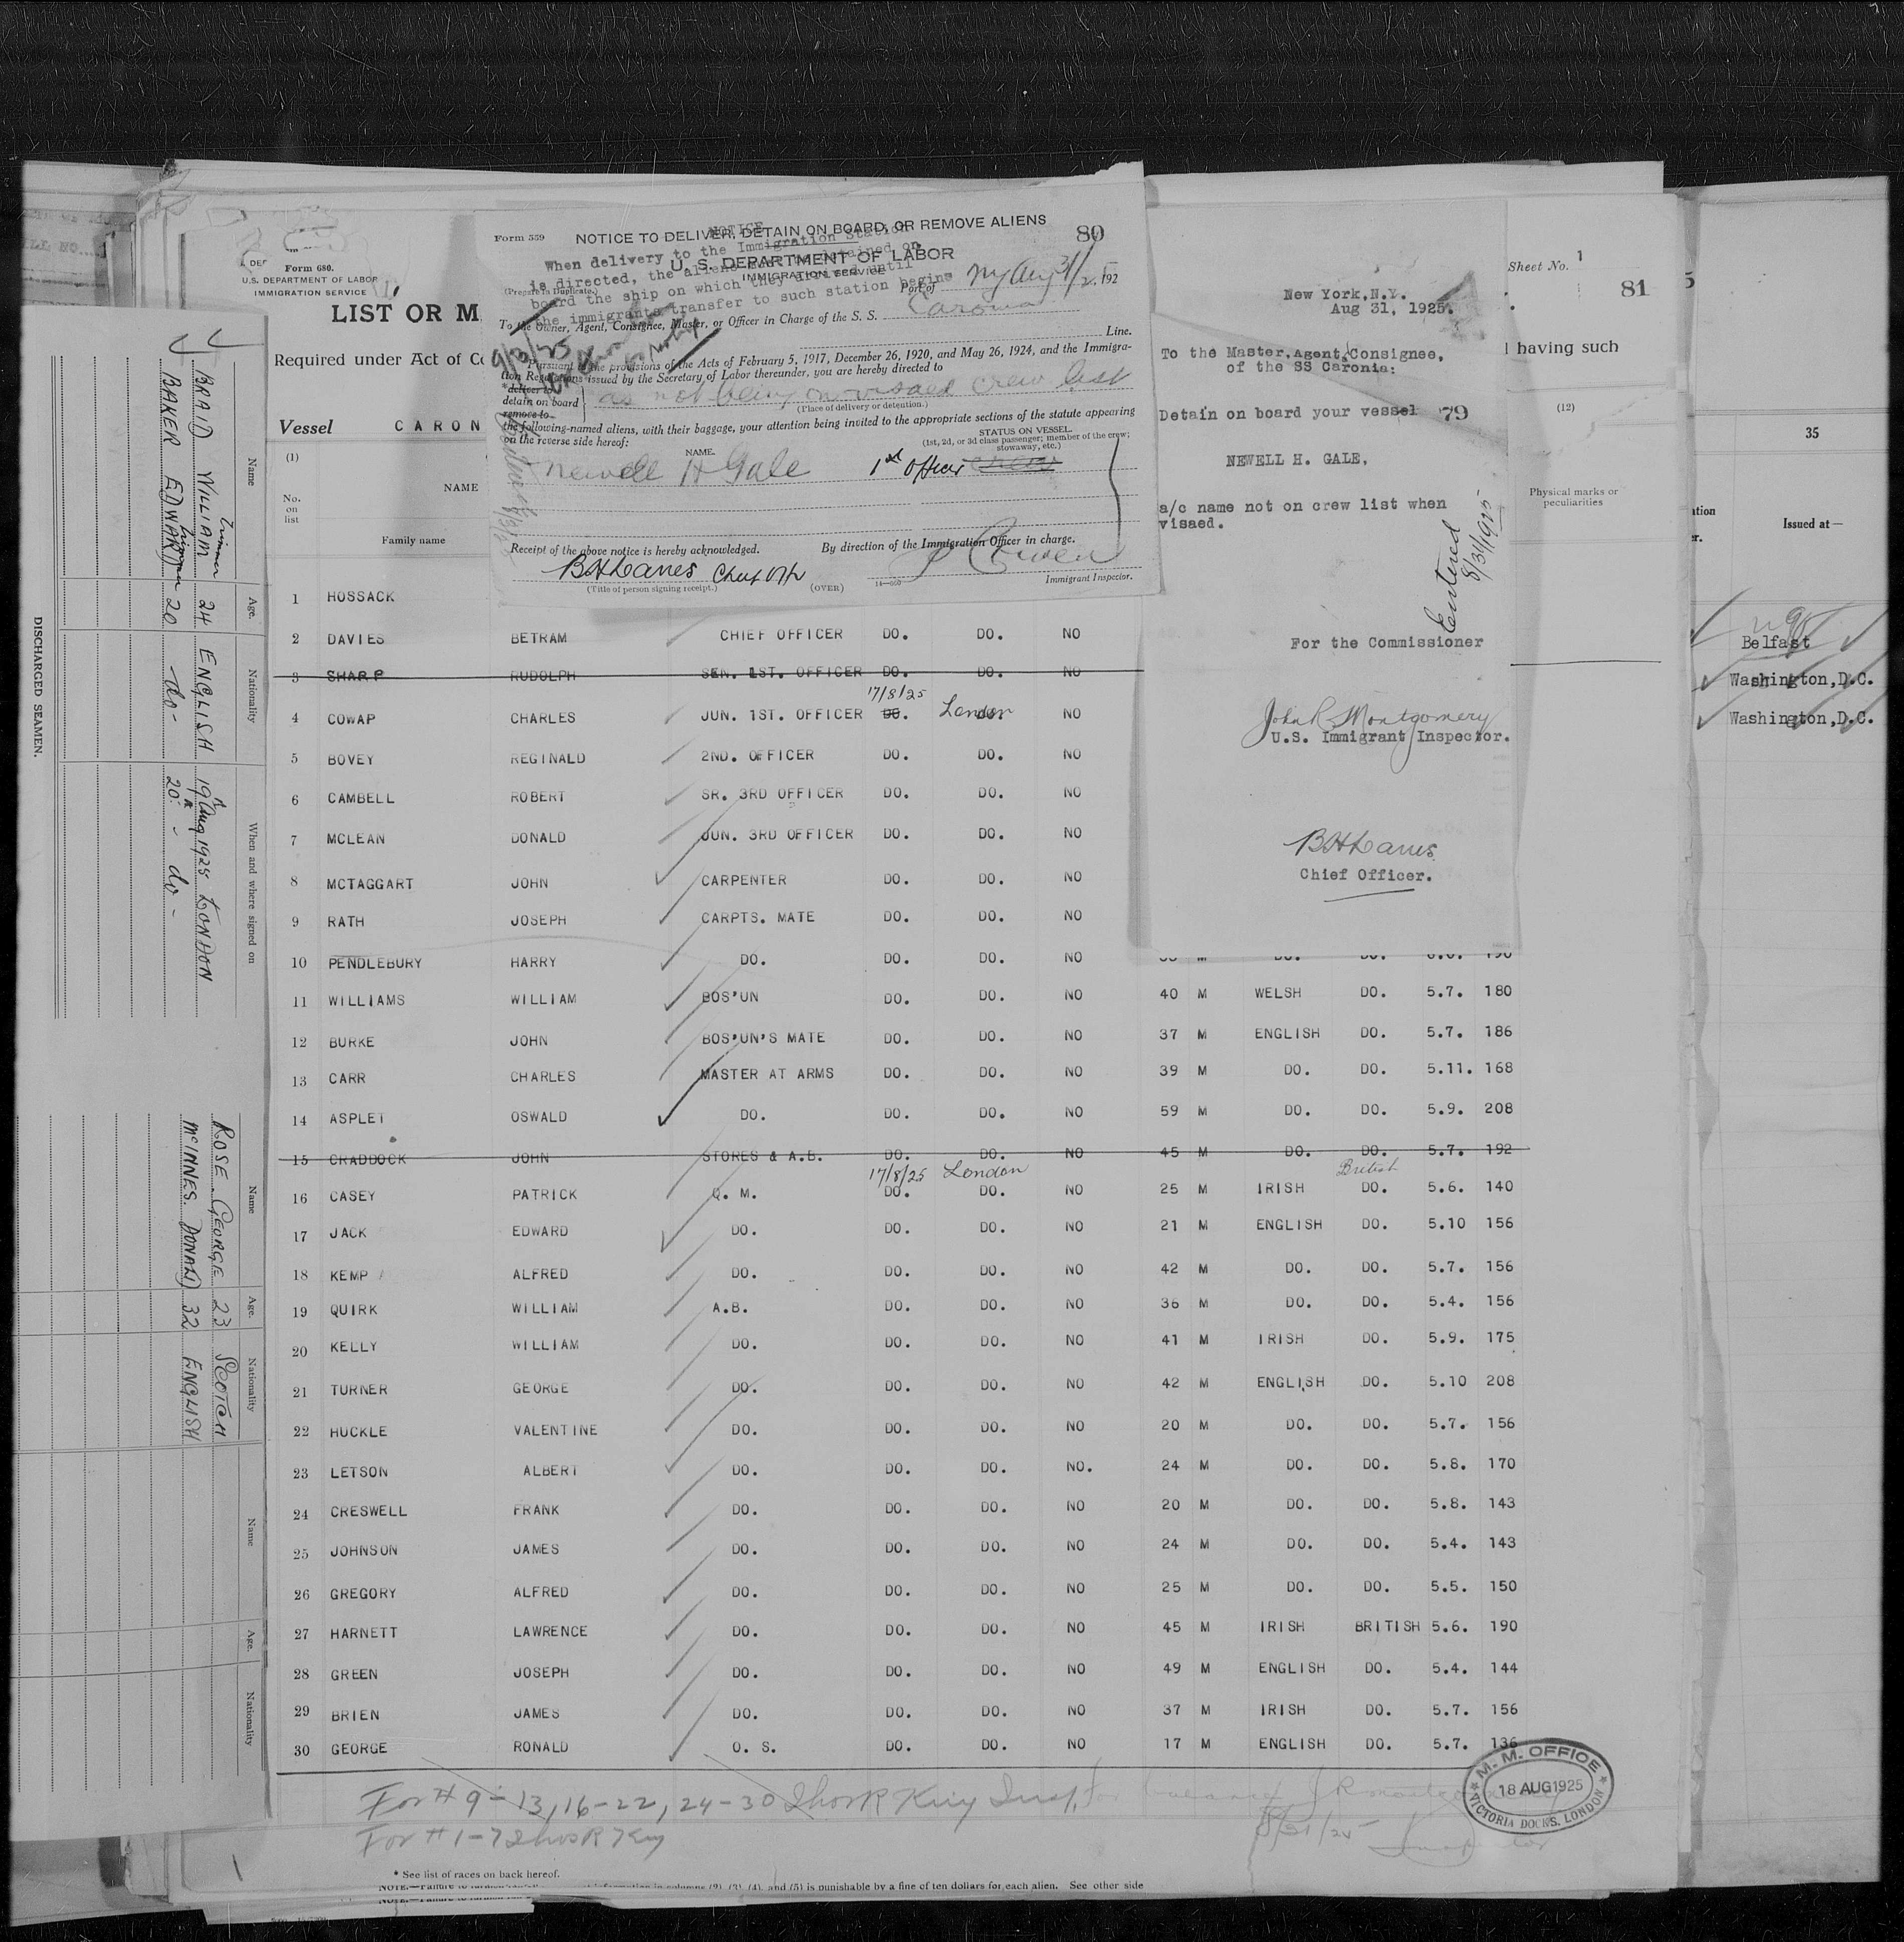 DISCHARGED SEAMEN.
Name
Age.
Nationality
When and where signed on
BRAID WILLIAM Trimmer 24 ENGLISH 19th Aug 1925 LONDON
BAKER EDWARD 20 -do- 20th - do -
Name
Age.
Nationality
ROSE GEORGE 23 SCOTCH
McINNES. DONALD 32 ENGLISH
Name
Age.
Nationality
Form 680.
U.S. DEPARTMENT OF LABOR
IMMIGRATION SERVICE
LIST OR M
Required under Act of Co
Vessel CARON
(1)
No. on list
NAME
Family name
Form 559
NOTICE TO DELIVER, DETAIN ON BOARD, OR REMOVE ALIENS
80
U. S. DEPARTMENT OF LABOR
IMMIGRATION SERVICE
NOTICE
When delivery to the Immigration Station
is directed, the aliens must be detained on
board the ship on which they arrived until
the immigrants transfer to such station begins
(Prepare in Duplicate.)
Port of NY Aug 31/25 192
To the Owner, Agent, Consignee, Master, or Officer in Charge of the S. S. Caronia
Line.
9/3/25
Pursuant to the provisions of the Acts of February 5, 1917, December 26, 1920, and May 26, 1924, and the Immigra-
tion Regulations issued by the Secretary of Labor thereunder, you are hereby directed to
*deliver to
detain on board
remove to
as not being on visaed crew list
(Place of delivery or detention.)
the following-named aliens, with their baggage, your attention being invited to the appropriate sections of the statute appearing
on the reverse side hereof:
STATUS ON VESSEL.
(1st, 2d, or 3d class passenger; member of the crew; stowaway, etc.)
NAME.
Newell H Gale 1st Officer
Receipt of the above notice is hereby acknowledged.
By direction of the Immigration Officer in charge.
BHDavies Chief Offr
(Title of person signing receipt.)
(OVER)
Immigrant Inspector.
New York, N.Y.
Aug 31, 1925.
To the Master, Agent, Consignee,
of the SS Caronia:
Detain on board your vessel 79
NEWELL H. GALE,
a/c name not on crew list when
visaed.
Entered
8/31/1925
For the Commissioner
John R Montgomery
U.S. Immigrant Inspector.
BHDavies
Chief Officer.
Sheet No. 1
81
having such
(12)
Physical marks or peculiarities
35
Issued at—
Belfast
Washington, D.C.
Washington, D.C.
1 HOSSACK
2 DAVIES BETRAM CHIEF OFFICER DO. DO. NO
3 SHARP RUDOLPH SEN. 1ST. OFFICER DO. DO. NO
17/8/25
4 COWAP CHARLES JUN. 1ST. OFFICER DO. London NO
5 BOVEY REGINALD 2ND. OFFICER DO. DO. NO
6 CAMBELL ROBERT SR. 3RD OFFICER DO. DO. NO
7 MCLEAN DONALD JUN. 3RD OFFICER DO. DO. NO
8 MCTAGGART JOHN CARPENTER DO. DO. NO
9 RATH JOSEPH CARPTS. MATE DO. DO. NO
10 PENDLEBURY HARRY DO. DO. DO. NO
11 WILLIAMS WILLIAM BOS'UN DO. DO. NO 40 M WELSH DO. 5.7. 180
12 BURKE JOHN BOS'UN'S MATE DO. DO. NO 37 M ENGLISH DO. 5.7. 186
13 CARR CHARLES MASTER AT ARMS DO. DO. NO 39 M DO. DO. 5.11. 168
14 ASPLET OSWALD DO. DO. DO. NO 59 M DO. DO. 5.9. 208
15 CRADDOCK JOHN STORES & A.B. DO. DO. NO 45 M DO. DO. 5.7. 192
17/8/25 London British
16 CASEY PATRICK Q. M. DO. DO. NO 25 M IRISH DO. 5.6. 140
17 JACK EDWARD DO. DO. DO. NO 21 M ENGLISH DO. 5.10 156
18 KEMP ALFRED DO. DO. DO. NO 42 M DO. DO. 5.7. 156
19 QUIRK WILLIAM A.B. DO. DO. NO 36 M DO. DO. 5.4. 156
20 KELLY WILLIAM DO. DO. DO. NO 41 M IRISH DO. 5.9. 175
21 TURNER GEORGE DO. DO. DO. NO 42 M ENGLISH DO. 5.10 208
22 HUCKLE VALENTINE DO. DO. DO. NO 20 M DO. DO. 5.7. 156
23 LETSON ALBERT DO. DO. DO. NO. 24 M DO. DO. 5.8. 170
24 CRESWELL FRANK DO. DO. DO. NO 20 M DO. DO. 5.8. 143
25 JOHNSON JAMES DO. DO. DO. NO 24 M DO. DO. 5.4. 143
26 GREGORY ALFRED DO. DO. DO. NO 25 M DO. DO. 5.5. 150
27 HARNETT LAWRENCE DO. DO. DO. NO 45 M IRISH BRITISH 5.6. 190
28 GREEN JOSEPH DO. DO. DO. NO 49 M ENGLISH DO. 5.4. 144
29 BRIEN JAMES DO. DO. DO. NO 37 M IRISH DO. 5.7. 156
30 GEORGE RONALD O. S. DO. DO. NO 17 M ENGLISH DO. 5.7. 136
M. M. OFFICE
18 AUG 1925
VICTORIA DOCKS. LONDON
For # 9-13, 16-22, 24-30
For # 1-7
8/31/25
* See list of races on back hereof.
information in columns (2), (3), (4), and (5) is punishable by a fine of ten dollars for each alien. See other side